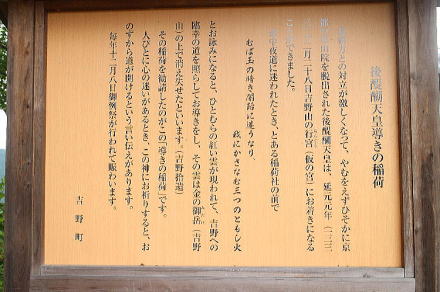 後醍醐天皇導きの稲荷
との対立が激しくなって、やむをえずひそかに京
を脱出された後醍醐天皇は、延元元年(一三三
十二月二十八日吉野山の行宮(仮の宮)にお着きになる
ことができました。
夜道に迷われたとき、とある稲荷社の前で
むば玉の暗き闇路に迷うなり
我にかさなむ三つのともし火
とお詠みになると、ひとむらの紅い雲が現われて、吉野への
臨幸の道を照らしてお導きをし、その雲は金の御岳(吉野
山)の上で消え失せたといいます。(吉野拾遺)
その稲荷を勧請したのがこの「導きの稲荷」です。
人びとに心の迷いがあるとき、この神にお祈りすると、お
のずから道が開けるという言い伝えがあります。
毎年十二月八日御例祭が行われて賑わいます。
吉野町